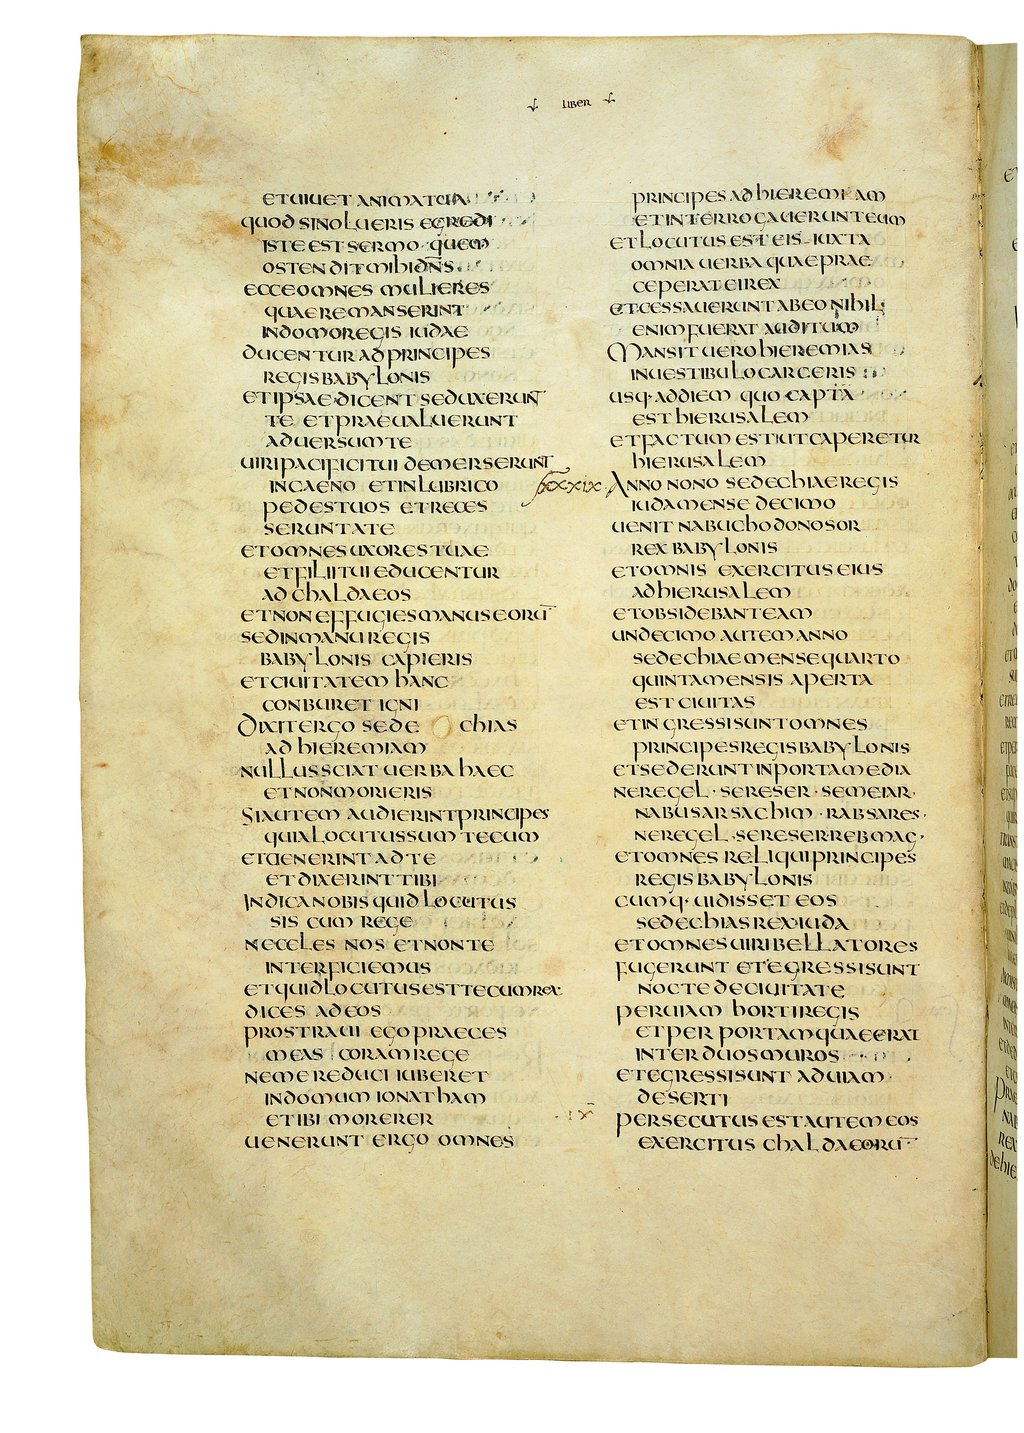 LIBER
ETUIUET ANIMATUA
QUOD SI NOLUERIS EGREDI
ISTE EST SERMO QUEM
OSTENDIT MIHI DN̄S
ECCE OMNES MULIERES
QUAE REMANSERINT
IN DOMO REGIS IUDAE
DUCENTUR AD PRINCIPES
REGIS BABYLONIS
ET IPSAE DICENT SEDUXERUNT
TE ET PRAEUALUERUNT
ADUERSUM TE
UIRI PACIFICI TUI DEMERSERUNT
IN CAENO ET IN LUBRICO
PEDES TUOS ET RECES
SERUNT A TE
ET OMNES UXORES TUAE
ET FILII TUI EDUCENTUR
AD CHALDAEOS
ET NON EFFUGIES MANUS EORŪ
SED IN MANU REGIS
BABYLONIS CAPIERIS
ET CIUITATEM HANC
CONBURET IGNI
DIXIT ERGO SEDE CHIAS
AD HIEREMIAM
NULLUS SCIAT UERBA HAEC
ET NON MORIERIS
SI AUTEM AUDIERINT PRINCIPES
QUIA LOCUTUS SUM TECUM
ET UENERINT AD TE
ET DIXERINT TIBI
INDICA NOBIS QUID LOCUTUS
SIS CUM REGE
NE CELES NOS ET NON TE
INTERFICIEMUS
ET QUID LOCUTUS EST TECUM REX
DICES AD EOS
PROSTRAUI EGO PRAECES
MEAS CORAM REGE
NE ME REDUCI IUBERET
IN DOMUM IONATHAM
ET IBI MORERER
UENERUNT ERGO OMNES
PRINCIPES AD HIEREMIAM
ET INTERROGAUERUNT EUM
ET LOCUTUS EST EIS IUXTA
OMNIA UERBA QUAE PRAE
CEPERAT EI REX
ET CESSAUERUNT AB EO NIHIL
ENIM FUERAT AUDITUM
MANSIT UERO HIEREMIAS
IN UESTIBULO CARCERIS
USQ· AD DIEM QUO CAPTA
EST HIERUSALEM
ET FACTUM EST UT CAPERETUR
HIERUSALEM
XXXIX· ANNO NONO SEDECHIAE REGIS
IUDA MENSE DECIMO
UENIT NABUCHODONOSOR
REX BABYLONIS
ET OMNIS EXERCITUS EIUS
AD HIERUSALEM
ET OBSIDEBANT EAM
UNDECIMO AUTEM ANNO
SEDECHIAE MENSE QUARTO
QUINTA MENSIS APERTA
EST CIUITAS
ET INGRESSI SUNT OMNES
PRINCIPES REGIS BABYLONIS
ET SEDERUNT IN PORTA MEDIA
NEREGEL · SERESER · SEMEIAR·
NABUSARSACHIM · RABSARES·
NEREGEL · SERESER REBMAG·
ET OMNES RELIQUI PRINCIPES
REGIS BABYLONIS
CUMQ· UIDISSET EOS
SEDECHIAS REX IUDA
ET OMNES UIRI BELLATORES
FUGERUNT ET EGRESSI SUNT
NOCTE DE CIUITATE
PER UIAM HORTI REGIS
ET PER PORTAM QUAE ERAT
INTER DUOS MUROS
ET EGRESSI SUNT AD UIAM
DESERTI
PERSECUTUS EST AUTEM EOS
EXERCITUS CHALDAEORŪ